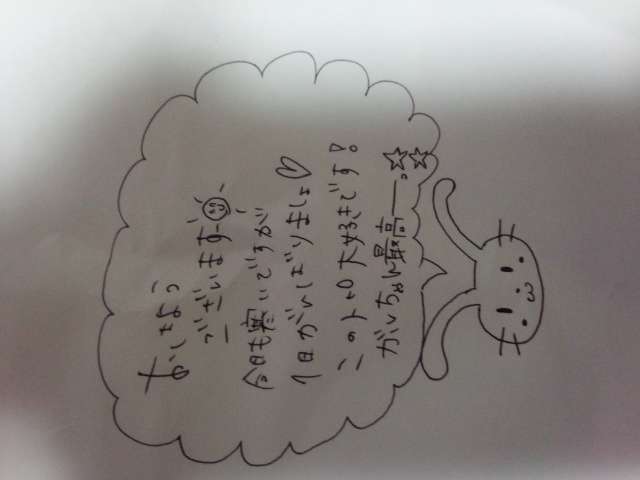 おはよう
ございます
今日も寒いですが
1日がんばりましょ♡
このトトロ大好きです!
がんちゃん最高ー。☆☆